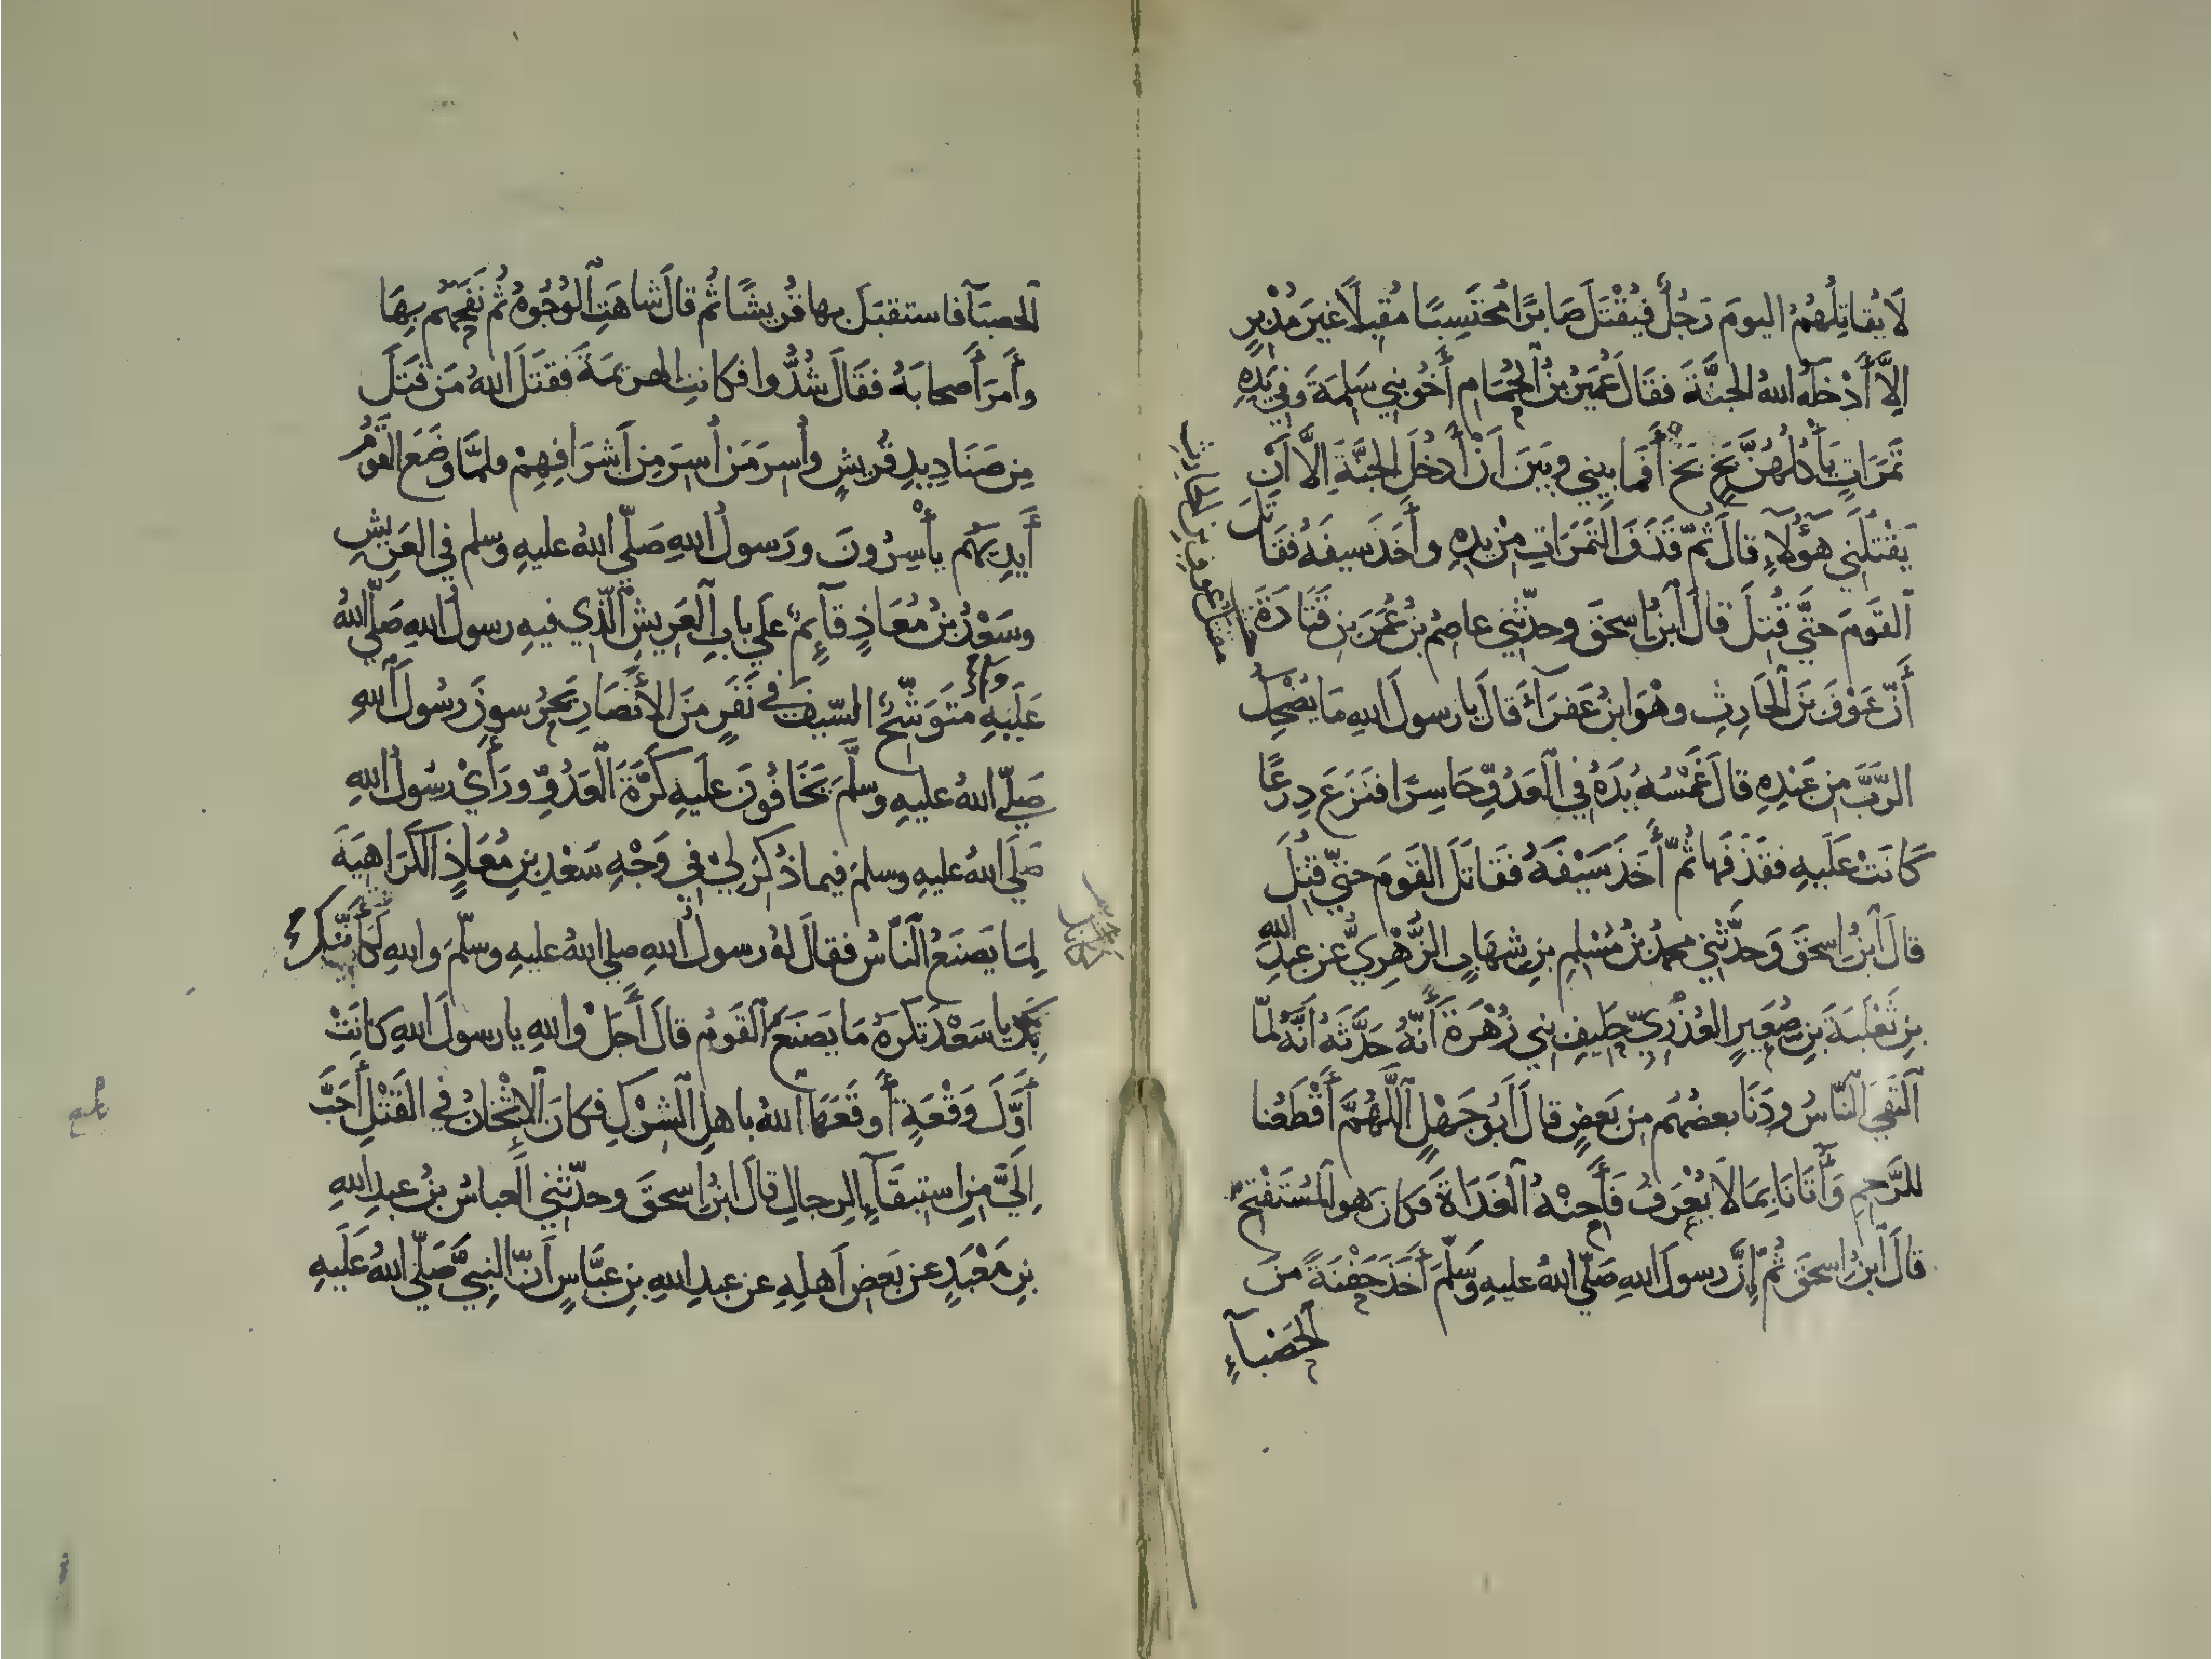 لَا يُقَاتِلُهُمُ اليومَ رَجُلٌ فَيُقْتَلَ صَابِرًا مُحْتَسِبًا مُقبِلًا غيرَ مُدْبِرٍ
إِلَّا أَدْخَلَهُ اللهُ الجنَّةَ فقالَ عُمَيْرُ بْنُ الحُمَامِ أَخُو بَنِي سَلِمَةَ وَفِي يَدِهِ
تَمَرَاتٌ يَأْكُلُهُنَّ بَخٍ بَخٍ أَفَمَا بيني وبينَ أَنْ أَدخُلَ الجنَّةَ إِلَّا أَنْ
يَقْتُلَنِي هَؤُلَآءِ قالَ ثُمَّ قَذَفَ التَّمَرَاتِ مِنْ يَدِهِ وأَخَذَ سيفَهُ فقَاتَلَ
القَومَ حَتَّى قُتِلَ قالَ ابنُ إِسحَقَ وحدّثني عاصِمُ بنُ عُمَرَ بنِ قَتَادَةَ
أَنَّ عَوْفَ بْنَ الحَارِثِ وهْوَ ابنُ عَفرَآءَ قالَ يا رسولَ اللهِ مَا يُضْحِكُ
الرَّبَّ مِن عَبْدِهِ قالَ غَمْسُهُ يَدَهُ فِي العَدُوِّ حَاسِرًا فنَزَعَ دِرعًا
كَانَتْ عَلَيهِ فقَذَفَهَا ثُمَّ أَخَذَ سَيْفَهُ فقَاتَلَ القَومَ حتَّى قُتِلَ
قالَ ابنُ إِسحَقَ وَحدَّثني محمدُ بنُ مُسْلِمِ بنِ شِهَابٍ الزُّهْرِيُّ عن عبدِ اللهِ
بنِ ثَعْلَبَةَ بنِ صُعَيرٍ العُذْرِيِّ حَلِيفِ بني زُهْرَةَ أَنَّهُ حَدَّثَهُ أَنَّهُ لمَّا
التَقَى النَّاسُ ودَنَا بعضُهُم مِن بَعضٍ قالَ أَبُو جَهْلٍ اللَّهُمَّ أَقْطَعُنا
للرَّحِمِ وَأَتَانَا بِمَا لَا يُعْرَفُ فَأَحِنْهُ الغَدَاةَ فَكانَ هو المُسْتَفْتِحُ
قالَ ابنُ إِسحَقَ ثُمَّ إِنَّ رسولَ اللهِ صَلَّى اللهُ عليهِ وَسَلَّمَ أَخَذَ حَفْنَةً مِنَ
الحَصْبَآءِ
مقتل عوف بن الحارث
الحصبَآءِ فاستقبَلَ بها قُريشًا ثُم قالَ شاهَتِ الوُجُوهُ ثُم نَفَحَهُم بِهَا
وأَمَرَ أَصحابَهُ فقَالَ شُدُّوا فكانتِ الهزيمَةَ فقَتَلَ اللهُ مَن قَتَلَ
مِن صَنَادِيدِ قُريشٍ وأُسِرَ مَن أُسِرَ مِن أَشرَافِهِمْ فلمَّا وضَعَ القَوْمُ
أَيدِيَهُم يأْسِرُونَ ورَسولُ اللهِ صَلَّى اللهُ عليهِ وسلم في العَرِيشِ
وسَعْدُ بنُ مُعَاذٍ قآئِمٌ على بابِ العَرِيشِ الَّذِي فيهِ رسولُ اللهِ صَلَّى اللهُ
عَلَيهِ وسلم مُتَوَشِّحُ السَّيفِ في نَفَرٍ مِنَ الأَنْصَارِ يَحرُسونَ رسُولَ اللهِ
صَلَّى اللهُ عليهِ وسَلَّمَ يَخَافُونَ عليهِ كَرَّةَ العَدُوِّ ورَأَى رسُولُ اللهِ
صَلَّى اللهُ عليهِ وسلمَ فيما ذُكِرَ لِي في وَجْهِ سَعْدِ بنِ مُعَاذٍ الكَرَاهِيَةَ
لِمَا يَصنَعُ النَّاسُ فقالَ لهُ رسولُ اللهِ صلى اللهُ عليهِ وسلّمَ واللهِ لَكَأَنِّي
بِكَ يا سَعْدُ تَكرَهُ مَا يَصنَعُ القَومُ قالَ أَجَلْ واللهِ يا رسولَ اللهِ كَانَتْ
أَوَّلَ وَقْعَةٍ أَوقَعَهَا اللهُ باهلِ الشِّرْكِ فكانَ الإِثْخَانُ فِي القَتْلِ أَحَبَّ
إِلَيَّ مِنِ استِبقَآءِ الرجالِ قالَ ابنُ إِسحقَ وحدّثني العباسُ بنُ عبدِ اللهِ
بنِ مَعْبَدٍ عن بَعضِ أَهلِهِ عن عبدِ اللهِ بنِ عبَّاسٍ أَنَّ النبيَّ صَلَّى اللهُ عَلَيهِ